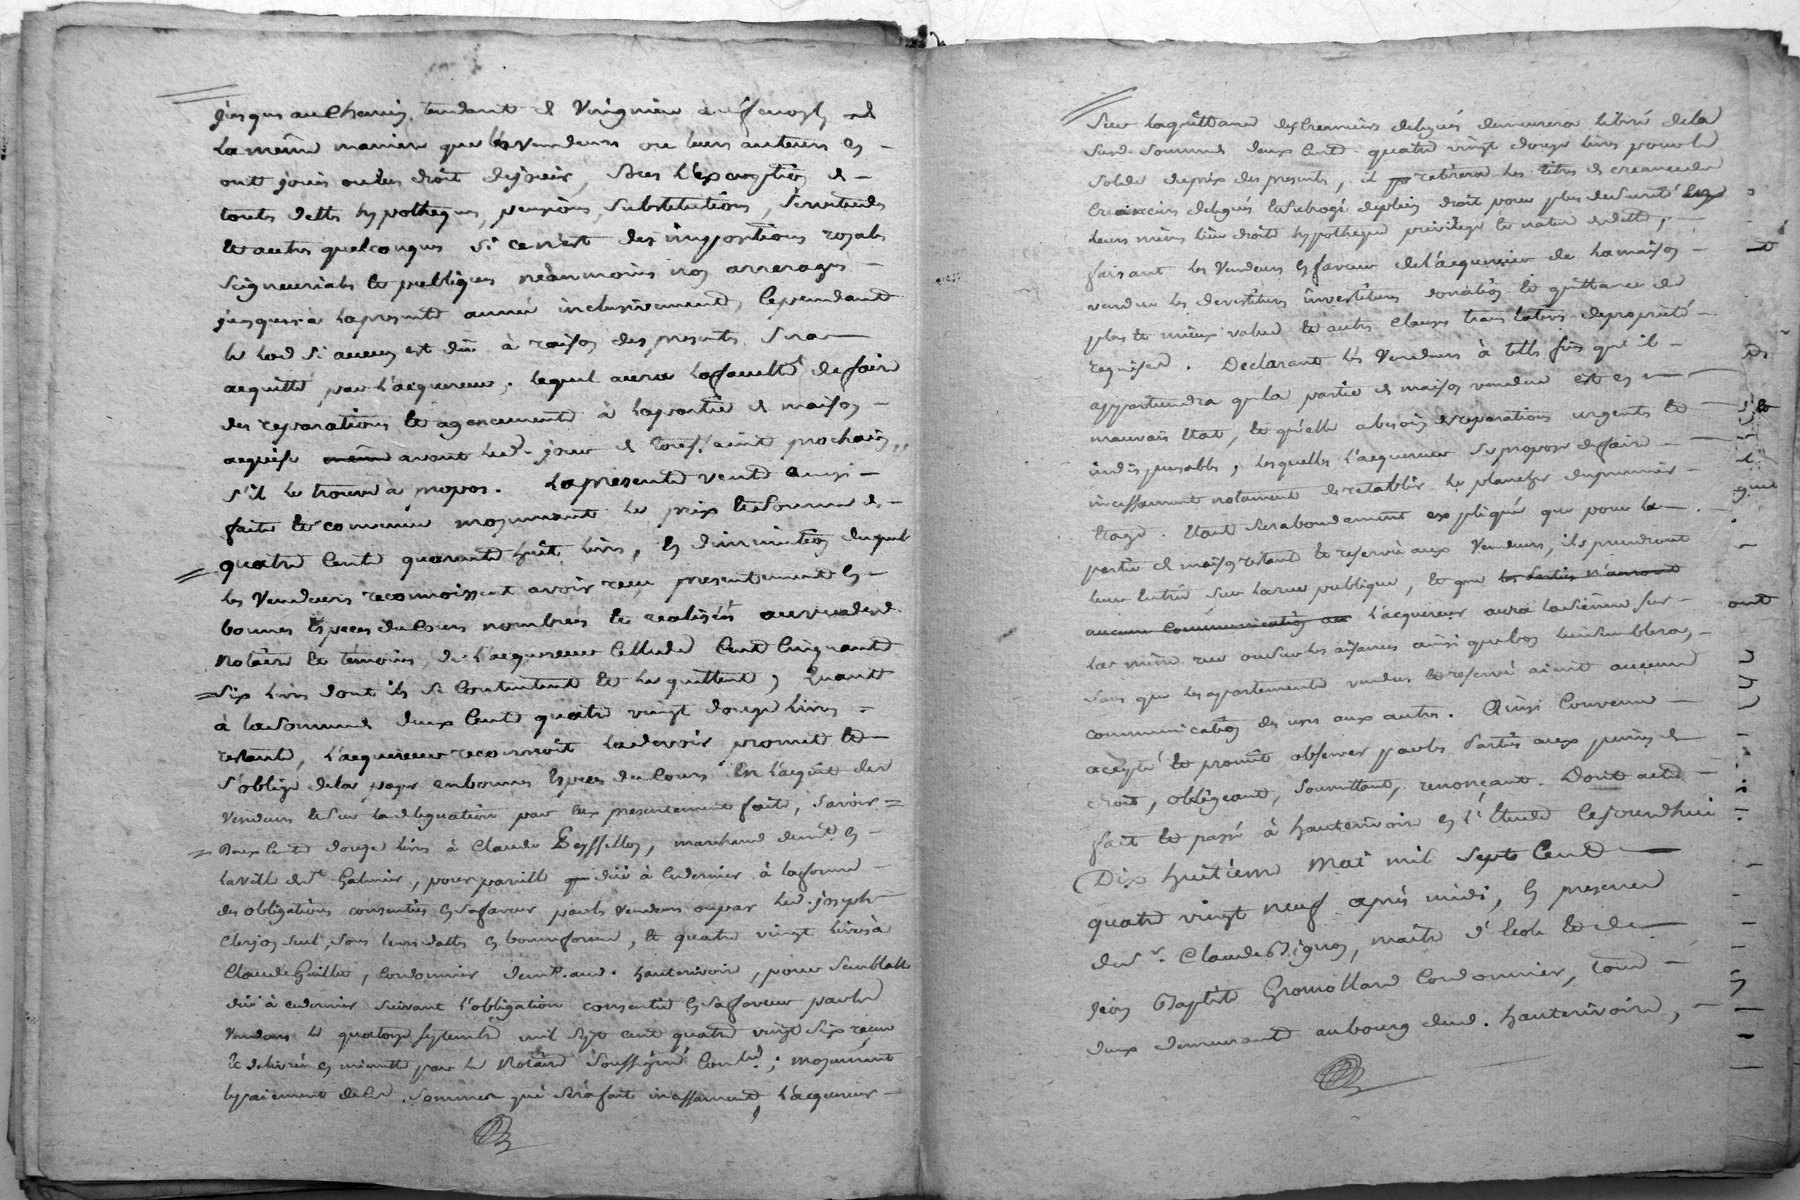 jusques au Chemin tendant de Virignieu à de
la même maniere que les Vendeurs ou leurs auteurs en
ont joui ou eu droit de jouir, sous l'exemption de
touts dettes hypotheques, pensions, substitutions, servitudes
et autres quelconques si ce n'est des impositions royales
seigneuriales et publiques neanmoins non arreragés
jusques à la presente année inclusivement, Cependant
le lod si aucun est dû à raison des presentes sera
acquitté par l'acquereur, lequel aura la faculté de faire
des reparations et agencements à la partie de maison
acquise avant led. jour de prochain,
s'il le trouve à propos. La presente vente ainsi
faite et convenue moyennant le prix et somme de
quatre Cent quarante huit livres, en diminution duquel
les Vendeurs reconnoissent avoir recu presentement en
bonnes Especes du Cours nombrées et realisées au vu dud.
Notaire et témoins, de l'acquereur Celle de Cent Cinquante
six livres dont ils se Contentent et le quittent, Quant
à la somme deux Cent quatre vingt douze livres
restante, l'acquereur reconnoit la devoir promet et
s'oblige de la payer en bonnes Especes du Cours En l'acquit des
Vendeurs et sur la delegation par Eux presentement faite, savoir
Deux Cent douze livres à Claude marchand demt. en
la ville de St. Galmier, pour pareille due à Ce dernier à la forme
des obligations consenties en sa faveur par les Vendeurs ou par led. joseph
Clerjon seul, sous leurs dattes en bonne forme, Et quatre vingt livres à
Claude Guillot, Cordonnier demt. aud. hauterivoire, pour semblable
due à ce dernier suivant l'obligation consentie en sa faveur par les
Vendeurs le quatorze septembre mil sept cent quatre vingt six recue
Et delivrée en minutte par le Notaire soussigné ; moyennant
le paiement desd. sommes qui sera fait incessamment, l'acquereur
Sur la quittance des Creanciers delegués demeurera libéré de la
susd. somme deux Cent quatre vingt douze livres pour le
solde du prix des presentes, il retirera les titres de creance des
Creanciers delegués subrogé de plein droit pour plus de sureté
leurs mêmes lieu droits hypotheque privilege et nature de dette,
faisant les Vendeurs en faveur de l'acquereur de la maison
vendue les devestitures investitures donation et quittance de
plus et mieux value et autres Clauses translatives de propriété
requises. Declarant les Vendeurs à telles fins qu'il
appartiendra que la partie de maison vendue est en
mauvais Etat, et qu'elle a besoin de reparations urgentes et
indispensables, lesquelles l'acquereur se propose de faire
incessamment notament de retablir le plancher du premier
Etage. Etant surabondament expliqué que pour la
partie de maison restant et reservée aux Vendeurs, ils prendront
leur Entrée sur la rue publique, et que les Parties n'auront
aucune Communication l'acquereur aura la sienne sur
la même rue ou sur les aisances ainsi que bon lui semblera,
sans que les apartements vendus et reservé aient aucune
communication des uns aux autres. Ainsi Convenu
accepté et promit observer par les Parties aux peines de
droit, obligeant, soumettant, renonçant. Dont acte
fait et passé à hauterivoire en l'Etude Cejourdhui
Dix huitieme Mai mil sept Cent
quatre vingt neuf après midi, En presence
de sr. Claude maître d'Ecole et de
jean Baptiste Gromollard Cordonnier, tous
deux demeurants au bourg dud. hauterivoire,